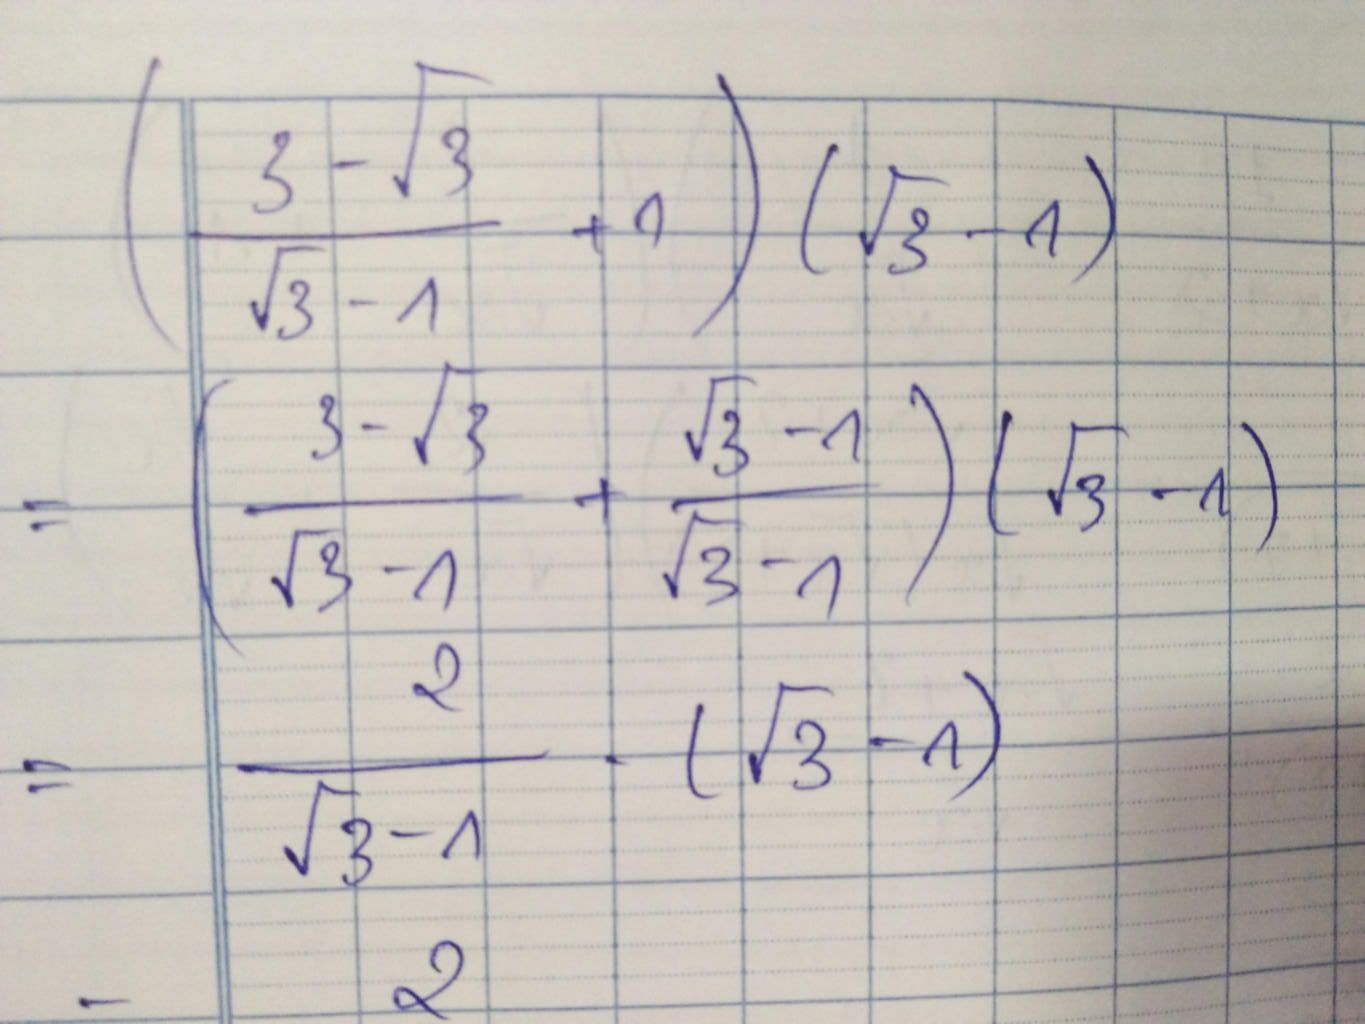 ((3 - √3)/(√3 - 1) + 1) (√3 - 1)
= ((3 - √3)/(√3 - 1) + (√3 - 1)/(√3 - 1)) (√3 - 1)
= 2/(√3 - 1) · (√3 - 1)
= 2